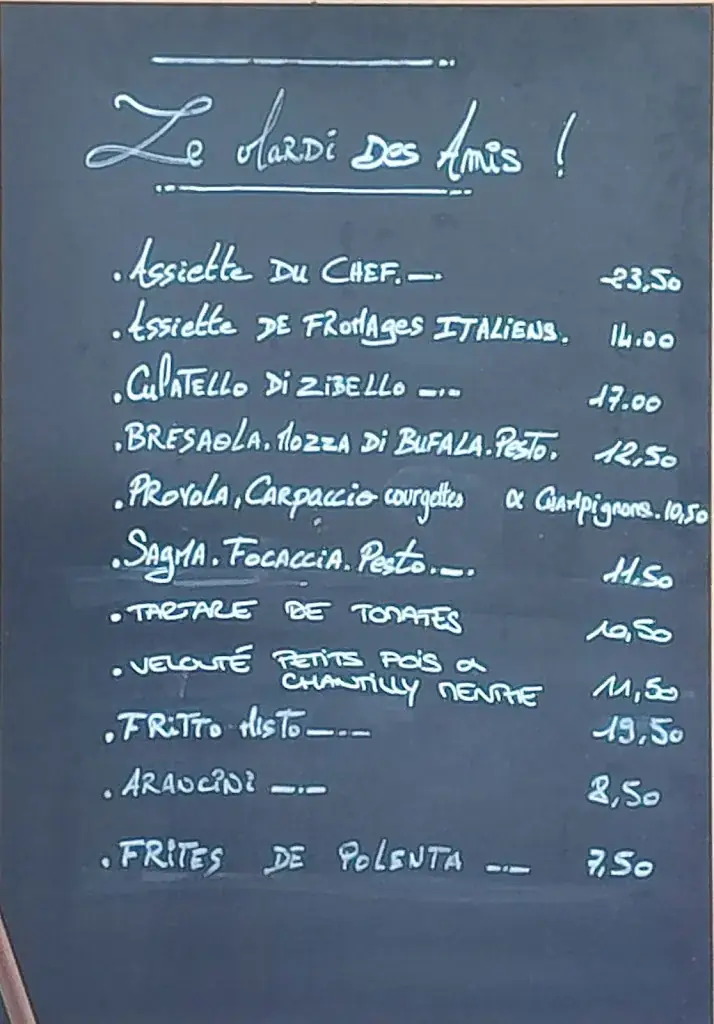 Le Mardi Des Amis !
. Assiette DU CHEF. —. 23,50
. Assiette DE FROMAges ITALIENS. 14.00
. CULATELLO Di ZiBELLO —.— 17.00
. BRESAOLA. MOZZA Di BUFALA. Pesto. 12,50
. PROVOLA, CARpaccio courgettes & CHAMpignons. 10,50
. SAgMA. FOCACCIA. Pesto. —. 11.50
. TARTARE DE TOMATES 10,50
. VELOUTÉ PETITS POIS &
CHANTILLY MENTHE 11,50
. FRiTTO MisTo —.— 19,50
. ARANCiNi —.— 8,50
. FRITES DE POLENTA —.— 7,50